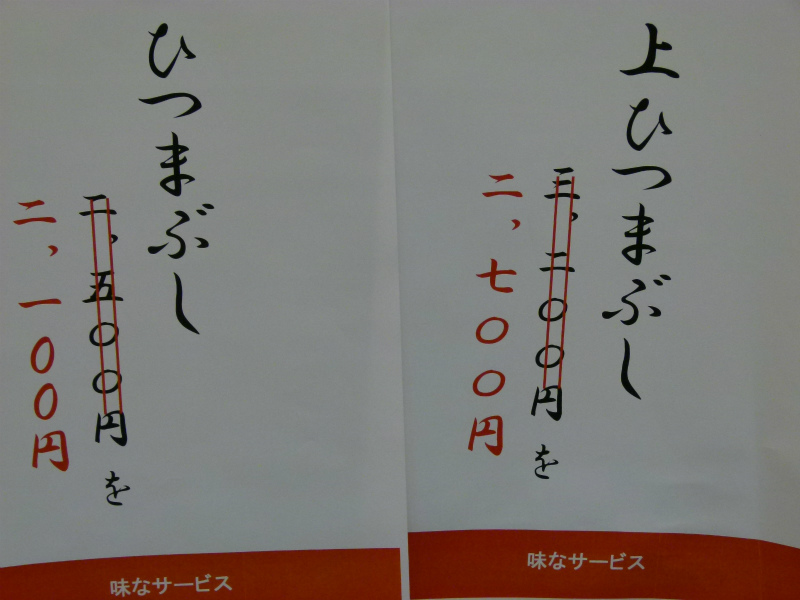 上ひつまぶし
三,二〇〇円を
二,七〇〇円
味なサービス
ひつまぶし
二,五〇〇円を
二,一〇〇円
味なサービス